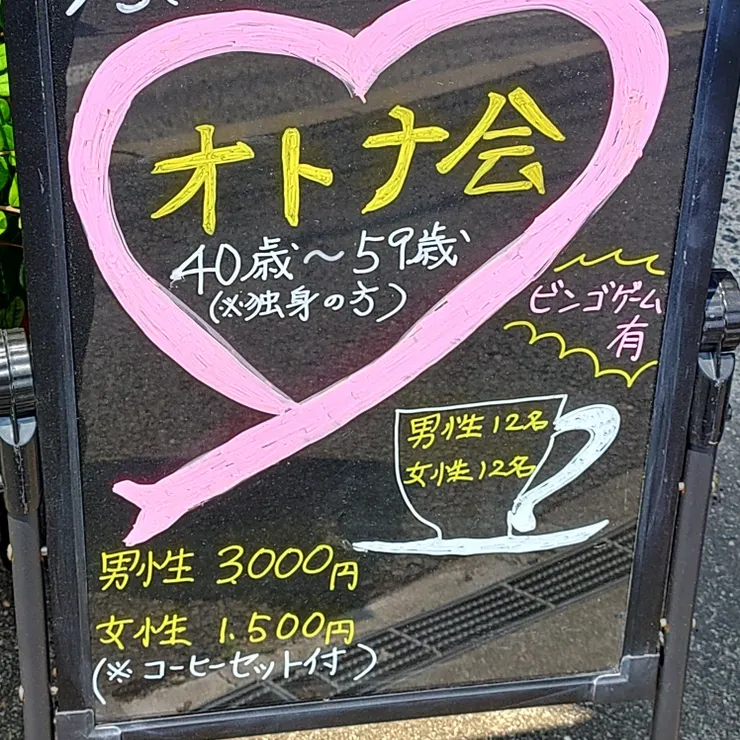 オトナ会
40歳～59歳
(※独身の方)
ビンゴゲーム
有
男性12名
女性12名
男性 3.000円
女性 1.500円
(※コーヒーセット付)